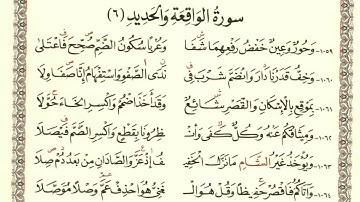 سورة الواقعة والحديد (٦)
١٠٥٩- وَحُورٌ وَعِينٌ خَفْضُ رَفْعِهِمَا شَفَا وَعُرْبًا سُكُونُ الضَّمِّ صُحِّحَ فَاعْتَلَى
١٠٦٠- وَخِفُّ قَدَرْنَا دَارَ وَانْضَمَّ شُرْبَ فِي نَدَى الصَّفْوِ وَاسْتِفْهَامُ إِنَّا صَفَا وِلَا
١٠٦١- بِمَوْقِعِ بِالْإِسْكَانِ وَالْقَصْرِ شَائِعٌ وَقَدْ أَخَذَ اضْمُمْ وَاكْسِرِ الْخَاءَ حُوَّلَا
١٠٦٢- وَمِيثَاقُكُمْ عَنْهُ وَكُلٌّ كَفَى وَأَنْـ ـظِرُونَا بِقَطْعٍ وَاكْسِرِ الضَّمَّ فَيْصَلَا
١٠٦٣- وَيُؤْخَذُ غَيْرُ الشَّامِ مَا نَزَلَ الْخَفِيـ ـفُ إِذْ عَزَّ وَالصَّادَانِ مِنْ بَعْدُ دُمْ صِلَا
١٠٦٤- وَآتَاكُمُ فَاقْصُرْ حَفِيظًا وَقُلْ هُوَ الْـ ـغَنِيُّ هُوَ احْذِفْ عَمَّ وَصْلًا مُوَصَّلَا